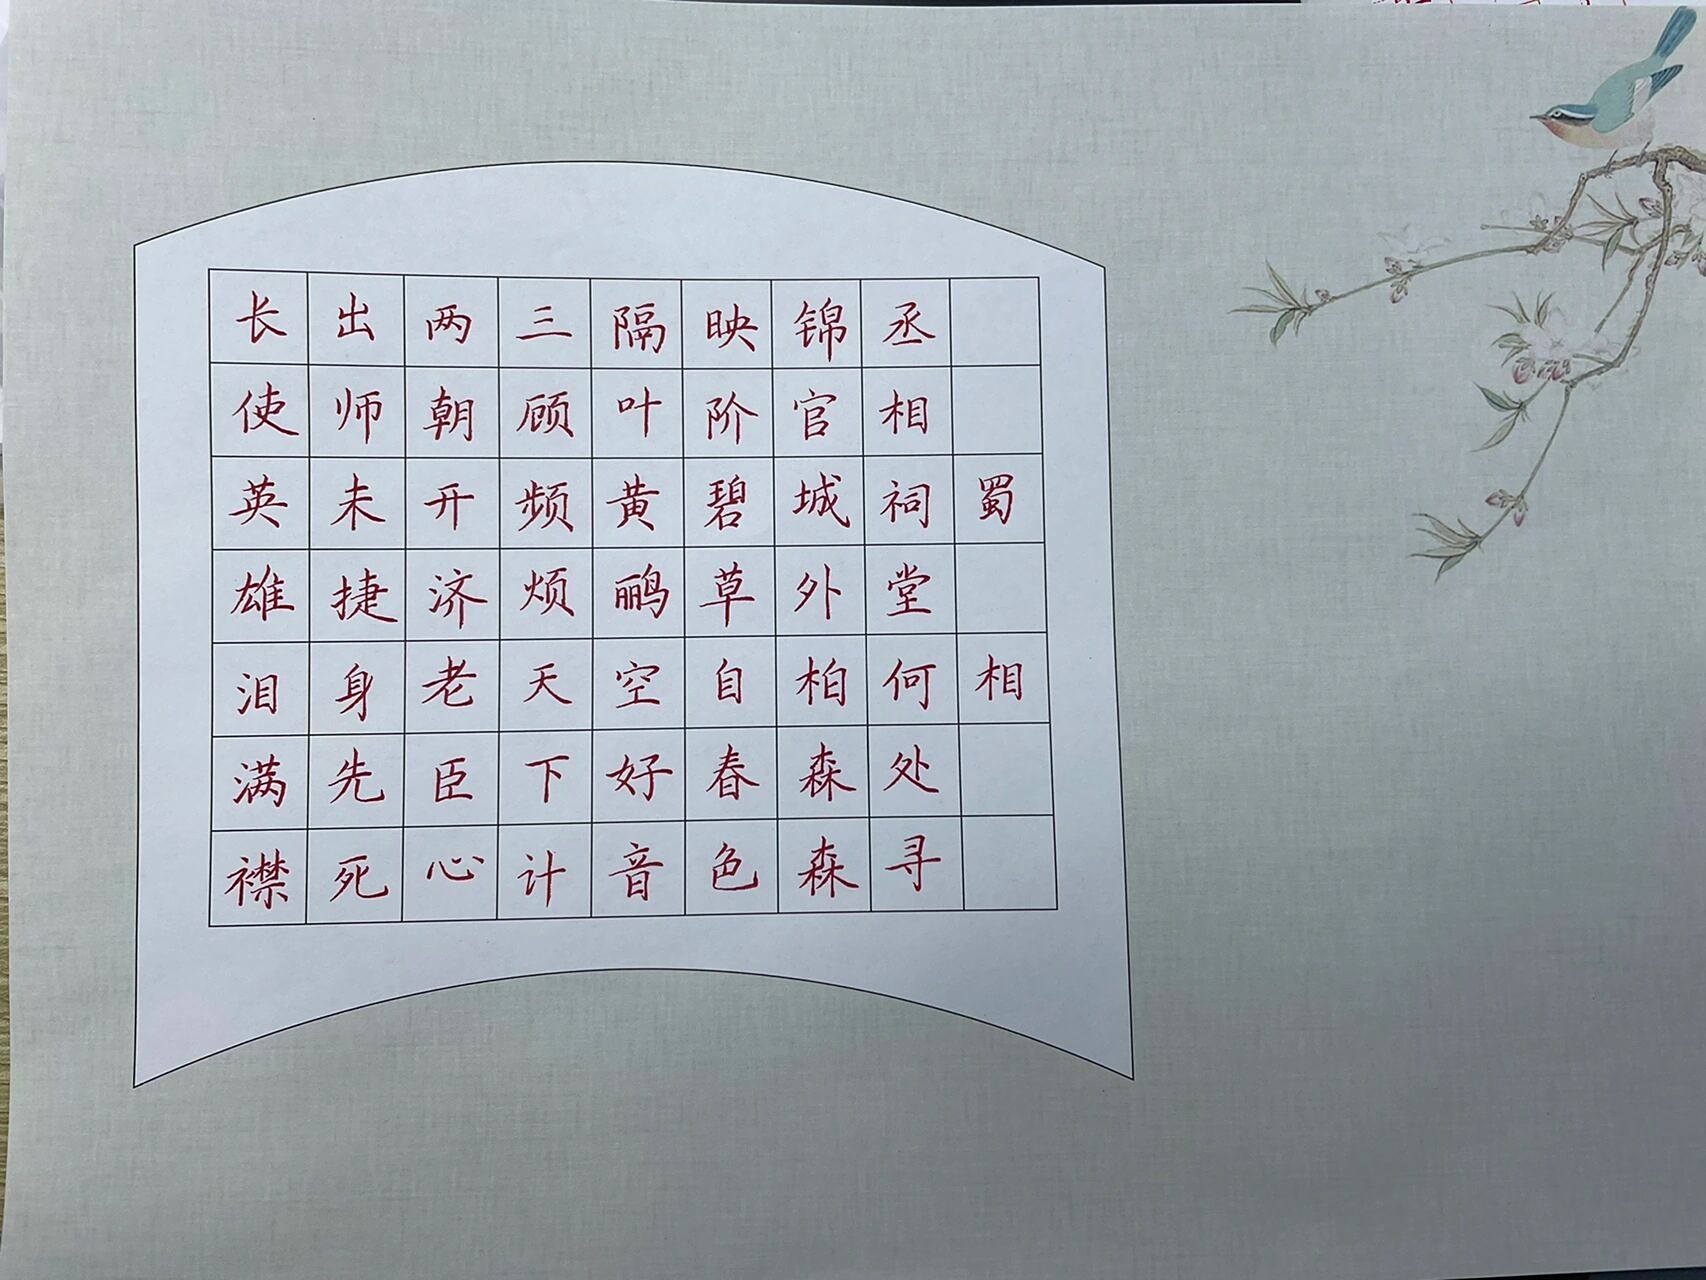 蜀相
丞相祠堂何处寻
锦官城外柏森森
映阶碧草自春色
隔叶黄鹂空好音
三顾频烦天下计
两朝开济老臣心
出师未捷身先死
长使英雄泪满襟